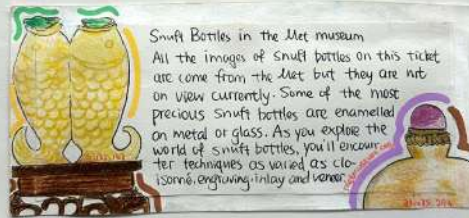 Snuff Bottles in the Met museum
All the images of snuff bottles on this ticket
are come from the Met but they are not
on view currently. Some of the most
precious snuff bottles are enamelled
on metal or glass. As you explore the
world of snuff bottles, you'll encoun-
ter techniques as varied as clo-
isonné, engraving, inlay and veneer.